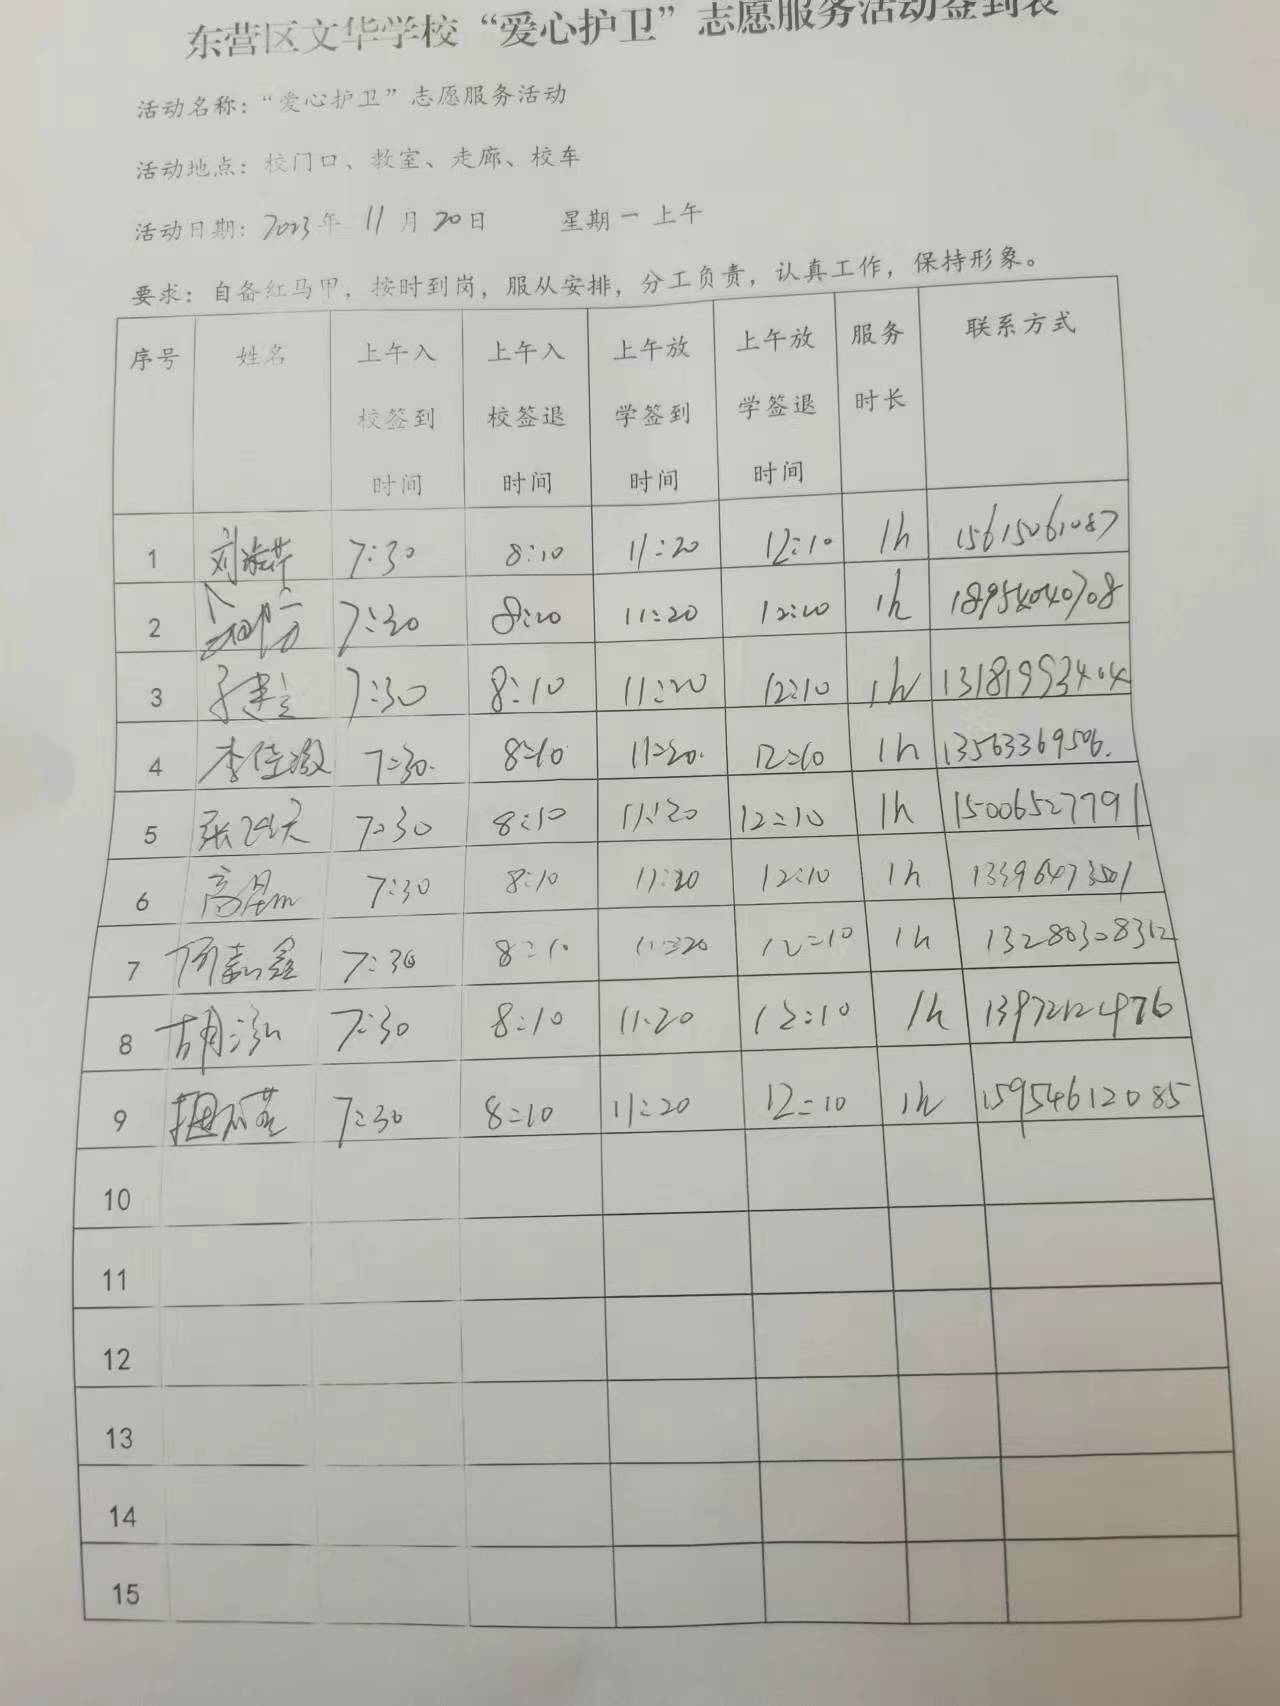 东营区文华学校“爱心护卫”志愿服务活动签到表
活动名称：“爱心护卫”志愿服务活动
活动地点：校门口、教室、走廊、校车
活动日期：2023年 11月20日 星期一上午
要求：自备红马甲，按时到岗，服从安排，分工负责，认真工作，保持形象。
序号 姓名 上午入校签到时间 上午入校签退时间 上午放学签到时间 上午放学签退时间 服务时长 联系方式
1 7:30 8:10 11:20 12:10 1h 15615061087
2 7:30 8:10 11:20 12:10 1h 18954040708
3 7:30 8:10 11:20 12:10 1h 13181993404
4 7:30 8:10 11:20 12:10 1h 13563369506
5 7:30 8:10 11:20 12:10 1h 15006527791
6 7:30 8:10 11:20 12:10 1h 13396473501
7 7:30 8:10 11:20 12:10 1h 13280308312
8 胡泓 7:30 8:10 11:20 12:10 1h
9 7:30 8:10 11:20 12:10 1h 15954612085
10
11
12
13
14
15